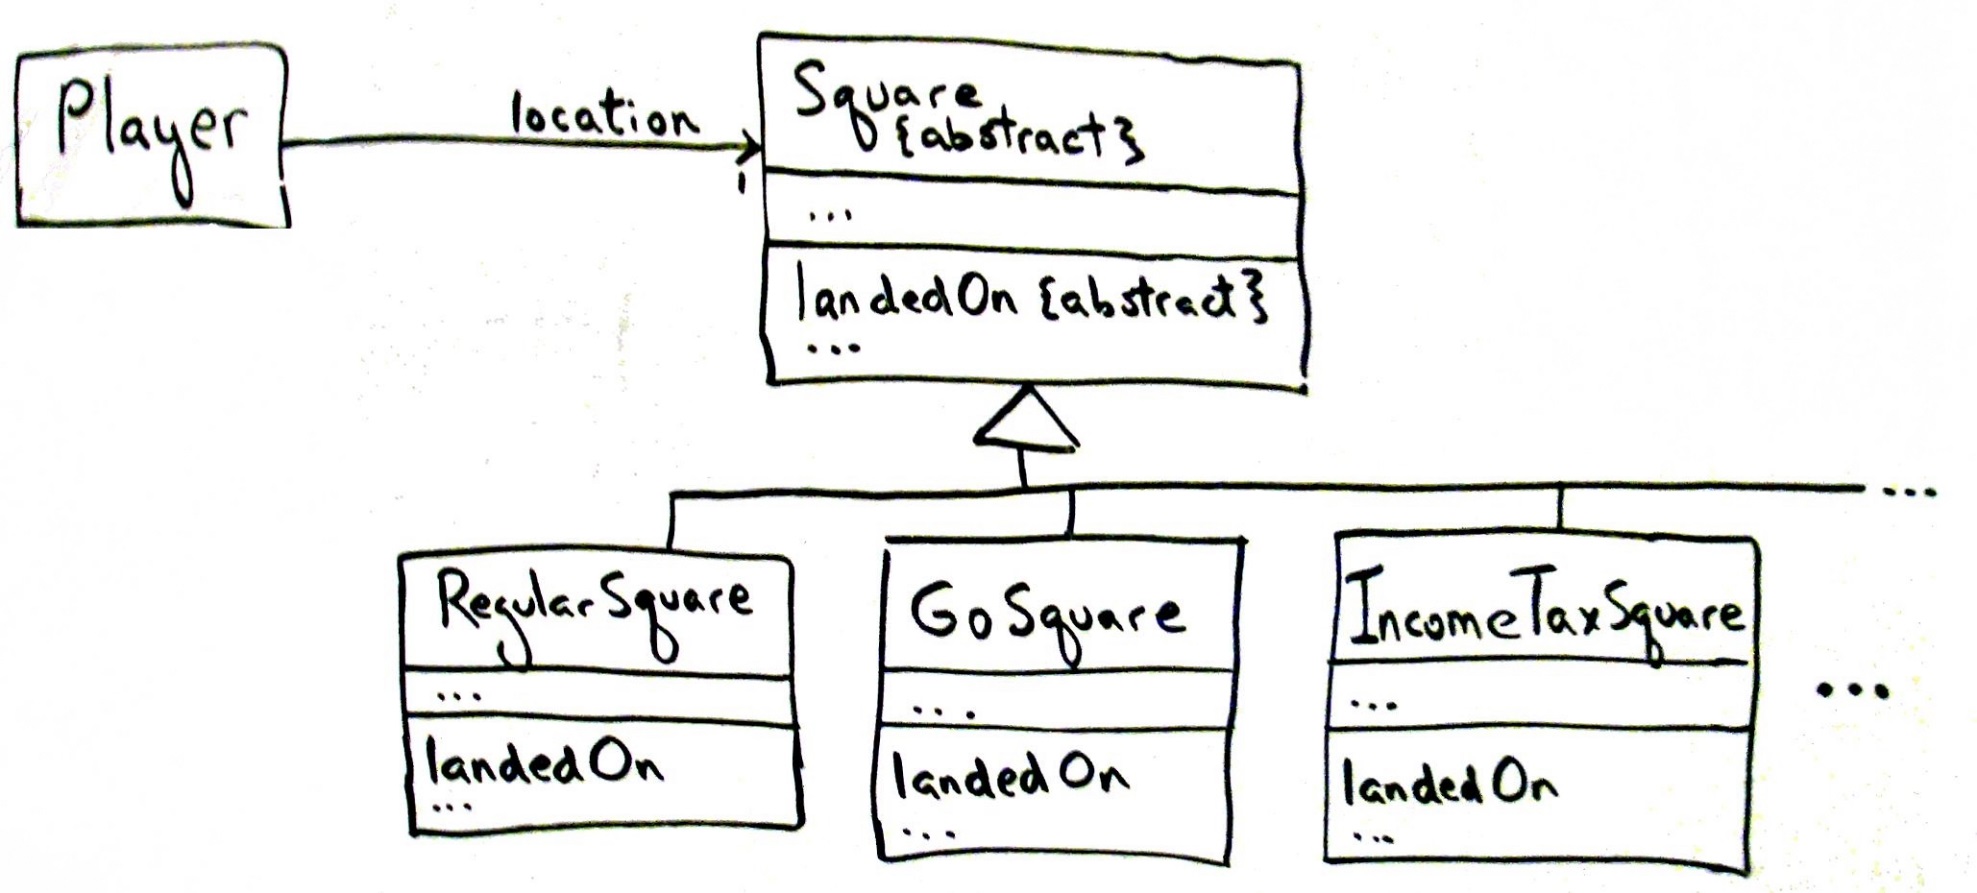 Player
location
1
Square
{abstract}
...
landedOn {abstract}
...
...
RegularSquare
...
landedOn
...
GoSquare
...
landedOn
...
IncomeTaxSquare
...
landedOn
...
...